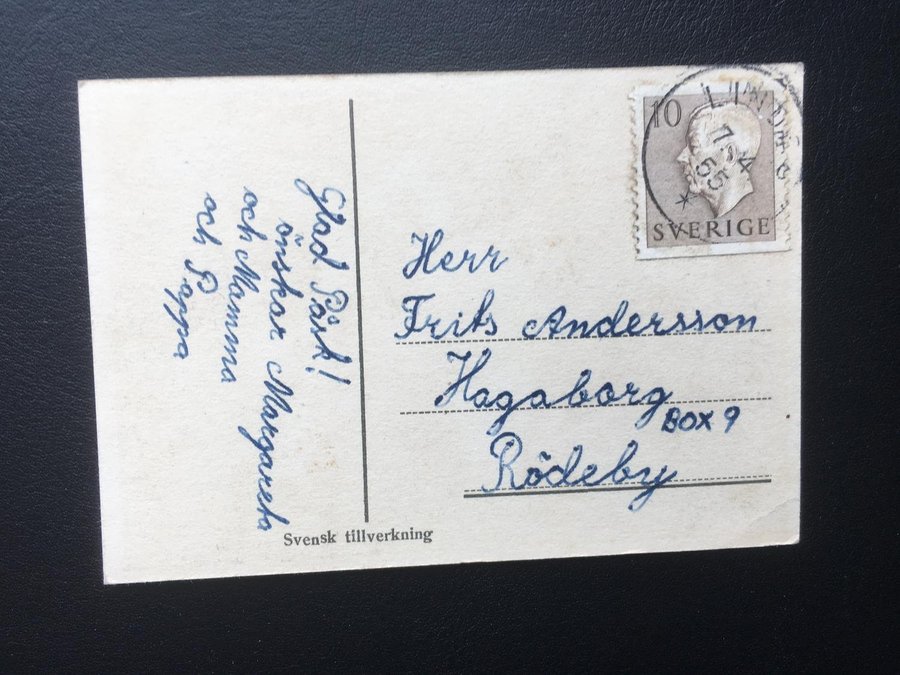 Glad Påsk!
önskar Margareta
och Mamma
och Pappa
10
7 - 4
55
SVERIGE
Herr
Frits Andersson
Hagaborg
BOX 9
Rödeby
Svensk tillverkning